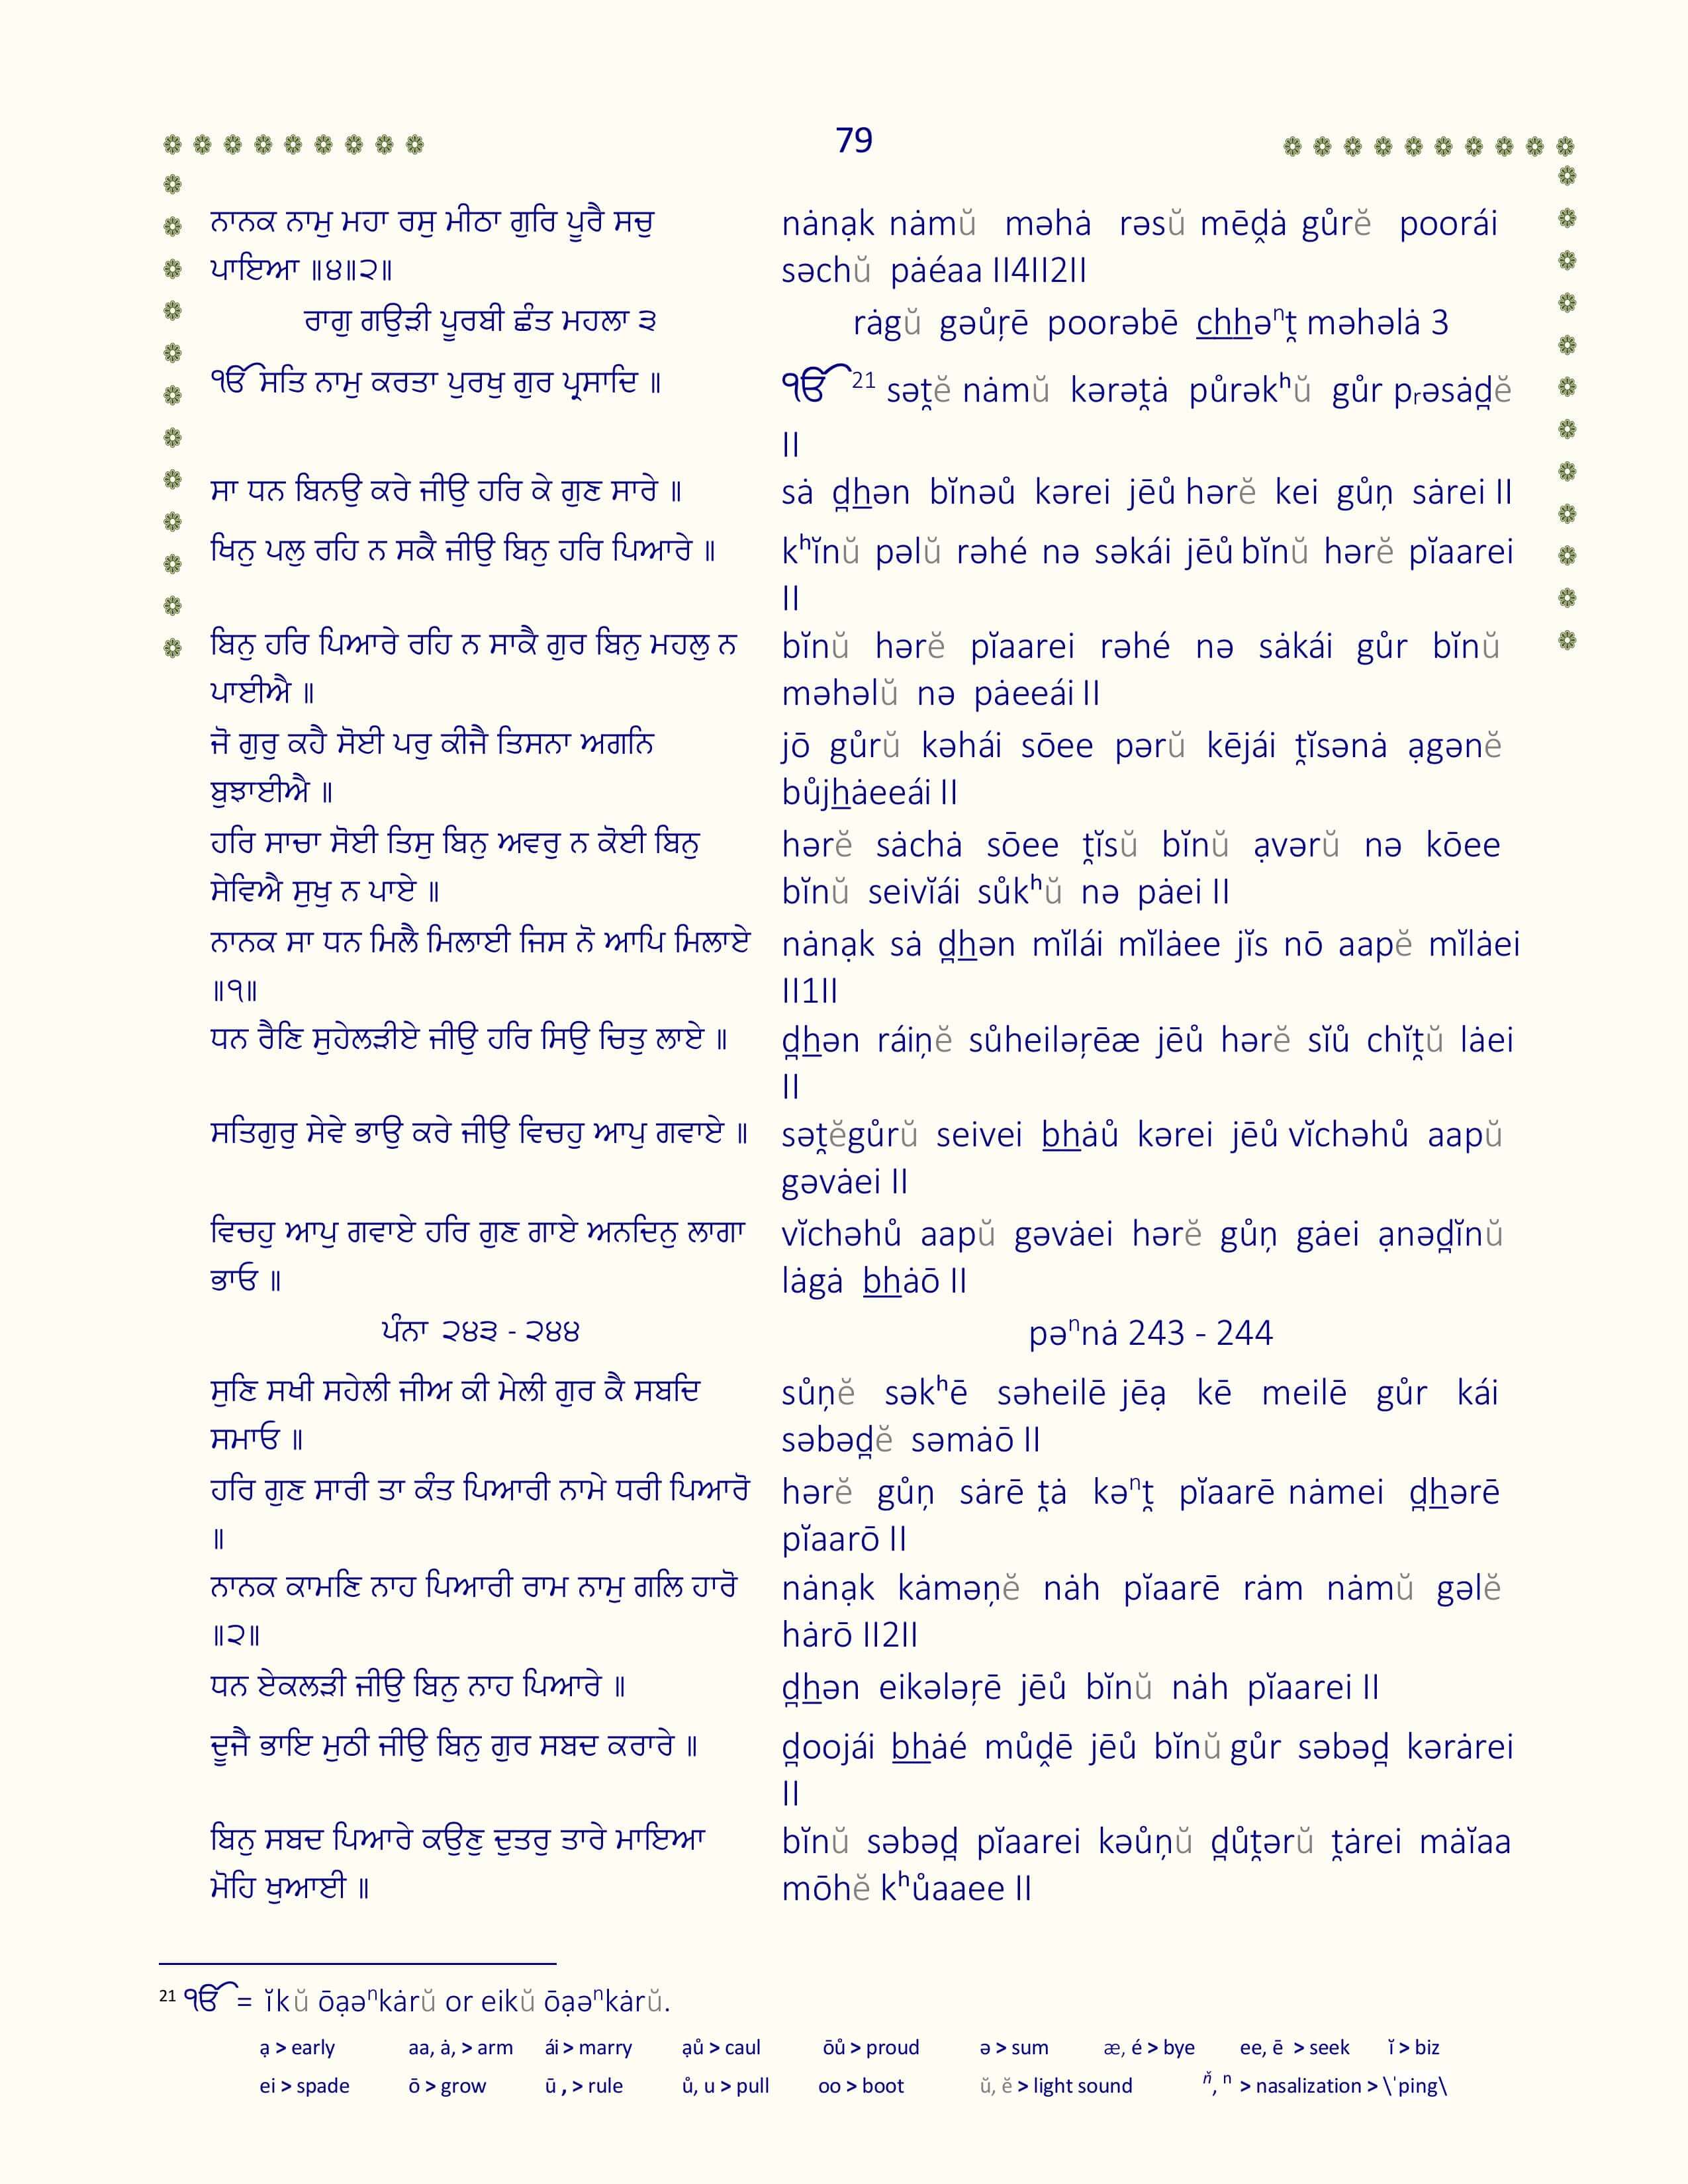 79
ਨਾਨਕ ਨਾਮੁ ਮਹਾ ਰਸੁ ਮੀਠਾ ਗੁਰਿ ਪੂਰੈ ਸਚੁ
ਪਾਇਆ ॥੪॥੨॥
ਰਾਗੁ ਗਉੜੀ ਪੂਰਬੀ ਛੰਤ ਮਹਲਾ ੩
ੴ ਸਤਿ ਨਾਮੁ ਕਰਤਾ ਪੁਰਖੁ ਗੁਰ ਪ੍ਰਸਾਦਿ ॥
ਸਾ ਧਨ ਬਿਨਉ ਕਰੇ ਜੀਉ ਹਰਿ ਕੇ ਗੁਣ ਸਾਰੇ ॥
ਖਿਨੁ ਪਲੁ ਰਹਿ ਨ ਸਕੈ ਜੀਉ ਬਿਨੁ ਹਰਿ ਪਿਆਰੇ ॥
ਬਿਨੁ ਹਰਿ ਪਿਆਰੇ ਰਹਿ ਨ ਸਾਕੈ ਗੁਰ ਬਿਨੁ ਮਹਲੁ ਨ
ਪਾਈਐ ॥
ਜੋ ਗੁਰੁ ਕਹੈ ਸੋਈ ਪਰੁ ਕੀਜੈ ਤਿਸਨਾ ਅਗਨਿ
ਬੁਝਾਈਐ ॥
ਹਰਿ ਸਾਚਾ ਸੋਈ ਤਿਸੁ ਬਿਨੁ ਅਵਰੁ ਨ ਕੋਈ ਬਿਨੁ
ਸੇਵਿਐ ਸੁਖੁ ਨ ਪਾਏ ॥
ਨਾਨਕ ਸਾ ਧਨ ਮਿਲੈ ਮਿਲਾਈ ਜਿਸ ਨੋ ਆਪਿ ਮਿਲਾਏ
॥੧॥
ਧਨ ਰੈਣਿ ਸੁਹੇਲੜੀਏ ਜੀਉ ਹਰਿ ਸਿਉ ਚਿਤੁ ਲਾਏ ॥
ਸਤਿਗੁਰੁ ਸੇਵੇ ਭਾਉ ਕਰੇ ਜੀਉ ਵਿਚਹੁ ਆਪੁ ਗਵਾਏ ॥
ਵਿਚਹੁ ਆਪੁ ਗਵਾਏ ਹਰਿ ਗੁਣ ਗਾਏ ਅਨਦਿਨੁ ਲਾਗਾ
ਭਾਓ ॥
ਪੰਨਾ ੨੪੩ - ੨੪੪
ਸੁਣਿ ਸਖੀ ਸਹੇਲੀ ਜੀਅ ਕੀ ਮੇਲੀ ਗੁਰ ਕੈ ਸਬਦਿ
ਸਮਾਓ ॥
ਹਰਿ ਗੁਣ ਸਾਰੀ ਤਾ ਕੰਤ ਪਿਆਰੀ ਨਾਮੇ ਧਰੀ ਪਿਆਰੋ
॥
ਨਾਨਕ ਕਾਮਣਿ ਨਾਹ ਪਿਆਰੀ ਰਾਮ ਨਾਮੁ ਗਲਿ ਹਾਰੋ
॥੨॥
ਧਨ ਏਕਲੜੀ ਜੀਉ ਬਿਨੁ ਨਾਹ ਪਿਆਰੇ ॥
ਦੂਜੈ ਭਾਇ ਮੁਠੀ ਜੀਉ ਬਿਨੁ ਗੁਰ ਸਬਦ ਕਰਾਰੇ ॥
ਬਿਨੁ ਸਬਦ ਪਿਆਰੇ ਕਉਣੁ ਦੁਤਰੁ ਤਾਰੇ ਮਾਇਆ
ਮੋਹਿ ਖੁਆਈ ॥
nȧnạk nȧmŭ məhȧ rəsŭ mēd̯ȧ gůrĕ poorái
səchŭ pȧéaa II4II2II
rȧgŭ gəůŗē poorəbē c̲h̲h̲əⁿt̯ məhəlȧ 3
ੴ ²¹ sət̯ĕ nȧmŭ kərət̯ȧ půrəkʰŭ gůr pᵣəsȧd̪ĕ
II
sȧ d̪h̲ən bĭnəů kərei jēů hərĕ kei gůņ sȧrei II
kʰĭnŭ pəlŭ rəhé nə səkái jēů bĭnŭ hərĕ pĭaarei
II
bĭnŭ hərĕ pĭaarei rəhé nə sȧkái gůr bĭnŭ
məhəlŭ nə pȧeeái II
jō gůrŭ kəhái sōee pərŭ kējái t̯ĭsənȧ ạgənĕ
bůjh̲ȧeeái II
hərĕ sȧchȧ sōee t̯ĭsŭ bĭnŭ ạvərŭ nə kōee
bĭnŭ seivĭái sůkʰŭ nə pȧei II
nȧnạk sȧ d̪h̲ən mĭlái mĭlȧee jĭs nō aapĕ mĭlȧei
II1II
d̪h̲ən ráiņĕ sůheiləŗēæ jēů hərĕ sĭů chĭt̯ŭ lȧei
II
sət̯ĕgůrŭ seivei b̲h̲ȧů kərei jēů vĭchəhů aapŭ
gəvȧei II
vĭchəhů aapŭ gəvȧei hərĕ gůņ gȧei ạnəd̪ĭnŭ
lȧgȧ b̲h̲ȧō II
pəⁿnȧ 243 - 244
sůņĕ səkʰē səheilē jēạ kē meilē gůr kái
səbəd̪ĕ səmȧō II
hərĕ gůņ sȧrē t̯ȧ kəⁿt̯ pĭaarē nȧmei d̪h̲ərē
pĭaarō II
nȧnạk kȧməņĕ nȧh pĭaarē rȧm nȧmŭ gəlĕ
hȧrō II2II
d̪h̲ən eikələŗē jēů bĭnŭ nȧh pĭaarei II
d̪oojái b̲h̲ȧé můd̯ē jēů bĭnŭ gůr səbəd̪ kərȧrei
II
bĭnŭ səbəd̪ pĭaarei kəůņŭ d̪ůt̯ərŭ t̯ȧrei mȧĭaa
mōhĕ kʰůaaee II
²¹ ੴ = ĭkŭ ōạəⁿkȧrŭ or eikŭ ōạəⁿkȧrŭ.
ạ > early aa, ȧ, > arm ái > marry ạů > caul ōů > proud ə > sum æ, é > bye ee, ē > seek ĭ > biz
ei > spade ō > grow ū , > rule ů, u > pull oo > boot ŭ, ĕ > light sound ň, ⁿ > nasalization > \ˈping\